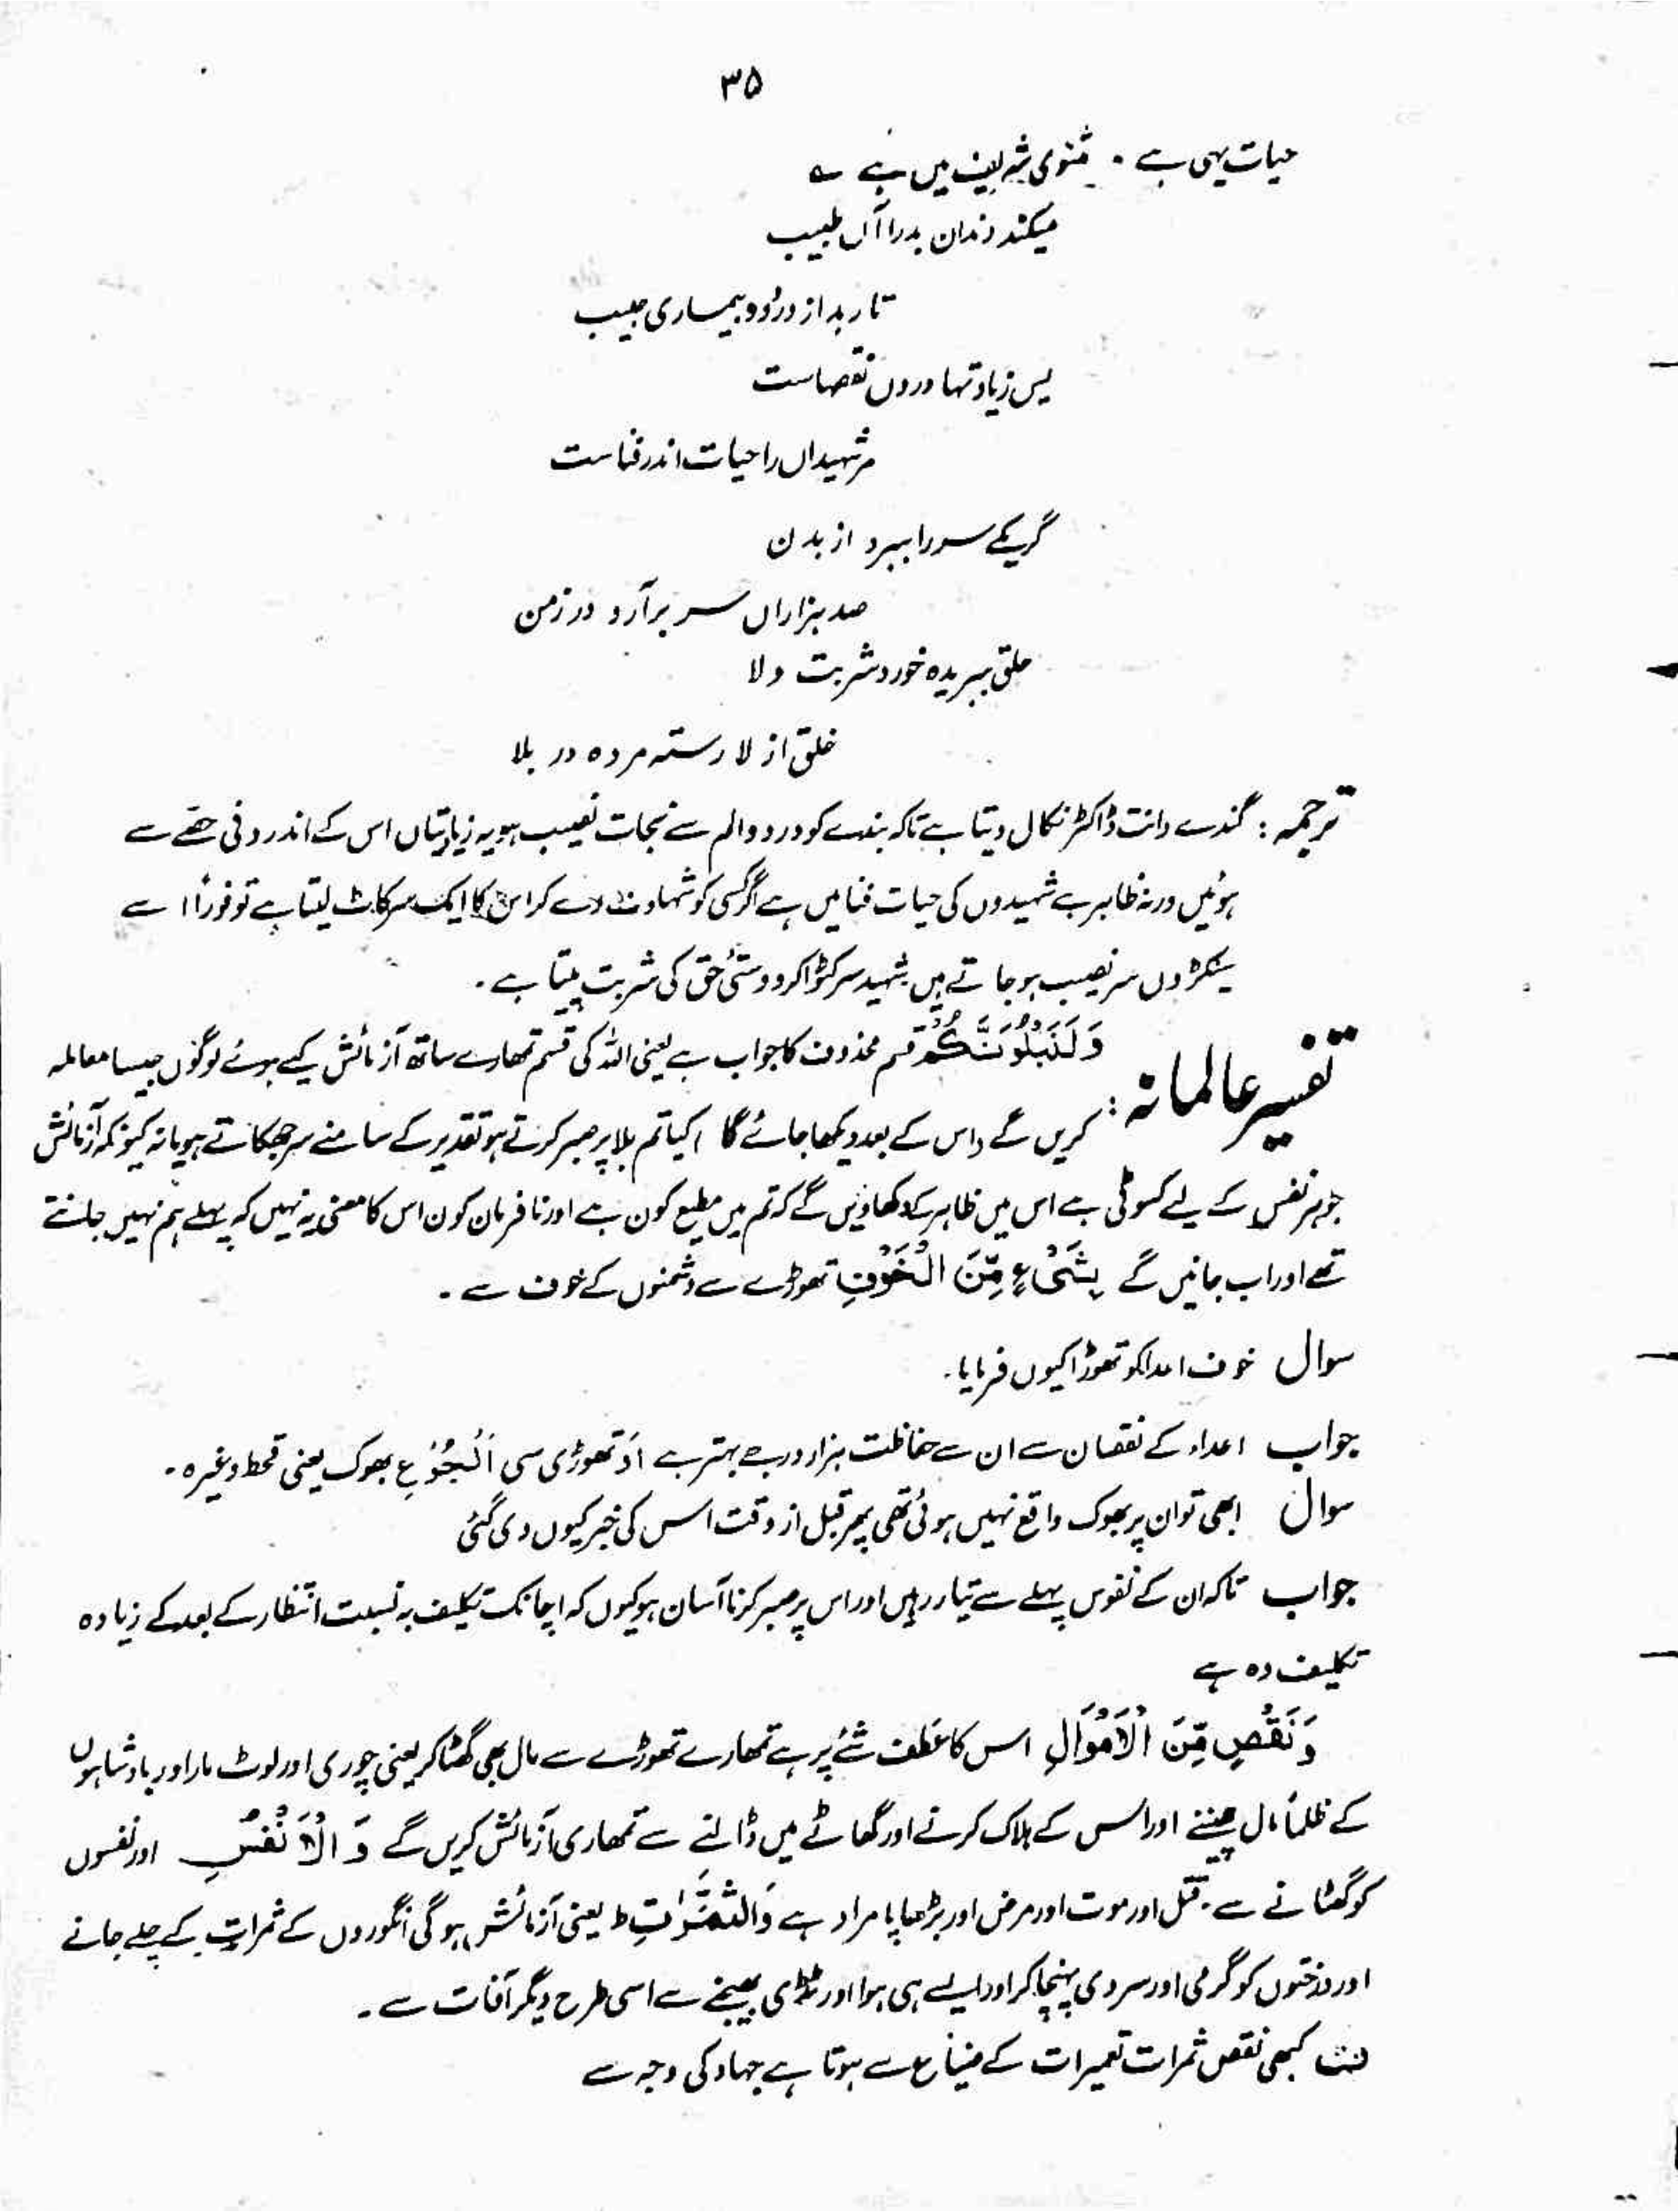 ۳۵
حیات یہی ہے ۔ مثنوی شریف میں ہے ؎
میکند دندان بد را آں طبیب
تا رہد از درد و بیماری حبیب
پس زیادتہا درون نقصہاست
مر شہیداں را حیات اندر فناست
گر یکے سر را ببرد از بدن
صد ہزاراں سر برآرد در زمن
حلق ببریدہ خورد شربت ولا
خلق از لا رستہ مردہ در بلا
ترجمہ : گندے دانت ڈاکٹر نکال دیتا ہے تاکہ بندے کو درد و الم سے نجات نصیب ہو یہ زیادتیاں اس کے اندرونی حصے سے
ہوئیں ورنہ ظاہر ہے شہیدوں کی حیات فنا میں ہے اگر کسی کو شہادت دے کر اس کا ایک سر کاٹ لیتا ہے تو فوراً اسے
سیکڑوں سر نصیب ہو جاتے ہیں شہید سر کٹوا کر دوستئ حق کی شربت پیتا ہے ۔
تفسیر عالمانہ : وَلَنَبْلُوَنَّكُمْ قسم محذوف کا جواب ہے یعنی اللہ کی قسم تمھارے ساتھ آزمائش کیے ہوئے لوگوں جیسا معاملہ
کریں گے (اس کے بعد دیکھا جائے گا) کیا تم بلا پر صبر کرتے ہو تقدیر کے سامنے سر جھکاتے ہو یا نہ کیونکہ آزمائش
جوہر نفس کے لیے کسوٹی ہے اس میں ظاہر کر دکھاویں گے کہ تم میں مطیع کون ہے اور نافرمان کون اس کا معنی یہ نہیں کہ پہلے ہم نہیں جانتے
تھے اور اب جانیں گے بِشَیْءٍ مِّنَ الْخَوْفِ تھوڑے سے دشمنوں کے خوف سے ۔
سوال خوف اعدا کو تھوڑا کیوں فرمایا۔
جواب اعداء کے نقصان سے ان سے حفاظت ہزار درجے بہتر ہے اور تھوڑی سی اَلْجُوْعِ بھوک یعنی قحط وغیرہ ۔
سوال ابھی تو ان پر بھوک واقع نہیں ہوئی تھی پھر قبل از وقت اس کی خبر کیوں دی گئی
جواب تاکہ ان کے نفوس پہلے سے تیار رہیں اور اس پر صبر کرنا آسان ہو کیوں کہ اچانک تکلیف بہ نسبت انتظار کے بعد کے زیادہ
تکلیف دہ ہے
وَنَقْصٍ مِّنَ الْاَمْوَالِ اس کا عطف شَیْءٍ پر ہے تمھارے تھوڑے سے مال بھی گھٹا کر یعنی چوری اور لوٹ مار اور بادشاہوں
کے ظلماً مال چھیننے اور اس کے ہلاک کرنے اور گھاٹے میں ڈالنے سے تمھاری آزمائش کریں گے وَالْاَنْفُسِ اور نفسوں
کو گھٹانے سے ۔ قتل اور موت اور مرض اور بڑھاپا مراد ہے وَالثَّمَرٰتِ ط یعنی آزمائش ہوگی انگوروں کے ثمرات کے چلے جانے
اور درختوں کو گرمی اور سردی پہنچا کر اور ایسے ہی ہوا اور ٹڈی بھیجنے سے اسی طرح دیگر آفات سے ۔
ف کبھی نقص ثمرات تعمیرات کے ضیاع سے ہوتا ہے جہاد کی وجہ سے